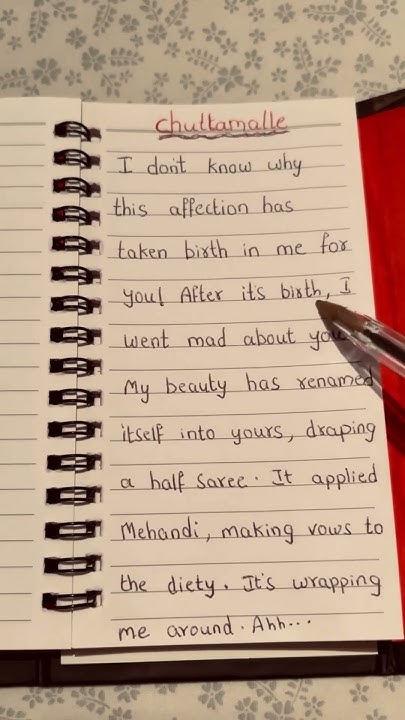 Chuttamalle
I don't know why
this affection has
taken birth in me for
you! After it's birth, I
went mad about you
My beauty has renamed
itself into yours, draping
a half saree. It applied
Mehandi, making vows to
the diety. It's wrapping
me around. Ahh...